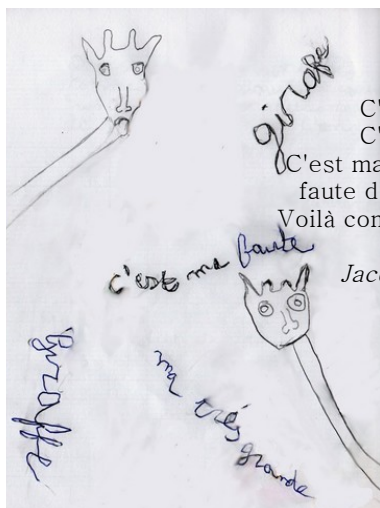 girafe
C'
C'
C'est ma
faute d
Voilà con
Jac
c'est ma faute
Giraffe
ma très
grande